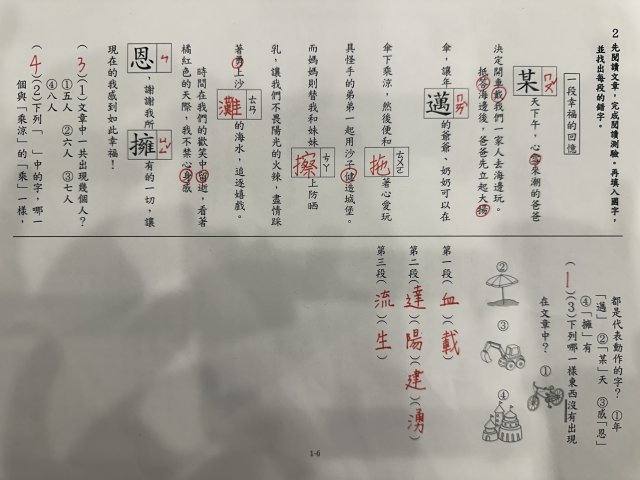 2 先閱讀文章，完成閱讀測驗，再填入國字，
並找出每段的錯字。
一段幸福的回憶
某ㄇㄡˇ天下午，心來潮的爸爸
決定開車戴我們一家人去海邊玩。
抵海邊後，爸爸先立起大揚
傘，讓年邁ㄇㄞˋ的爺爺、奶奶可以在
傘下乘涼，然後便和拖ㄊㄨㄛ著心愛玩
具怪手的弟弟一起用沙子健造城堡。
而媽媽則替我和妹妹擦ㄘㄚ上防晒
乳，讓我們不畏陽光的火辣，盡情踩
著勇上沙灘ㄊㄢ的海水，追逐嬉戲。
時間在我們的歡笑中留逝，看著
橘紅色的天際，我不禁心身感
恩ㄣ，謝謝我所擁ㄩㄥˇ有的一切，讓
現在的我感到如此幸福！
(3)(1)文章中一共出現幾個人？
①五人 ②六人 ③七人
④八人
(4)(2)下列「 」中的字，哪一
個與「乘涼」的「乘」一樣，
都是代表動作的字？ ①年
「邁」 ②「某」天 ③感「恩」
④「擁」有
(1)(3)下列哪一樣東西沒有出現
在文章中？ ①
② ③ ④
第一段(血)(載)
第二段(達)(陽)(建)(湧)
第三段(流)(生)
1-6